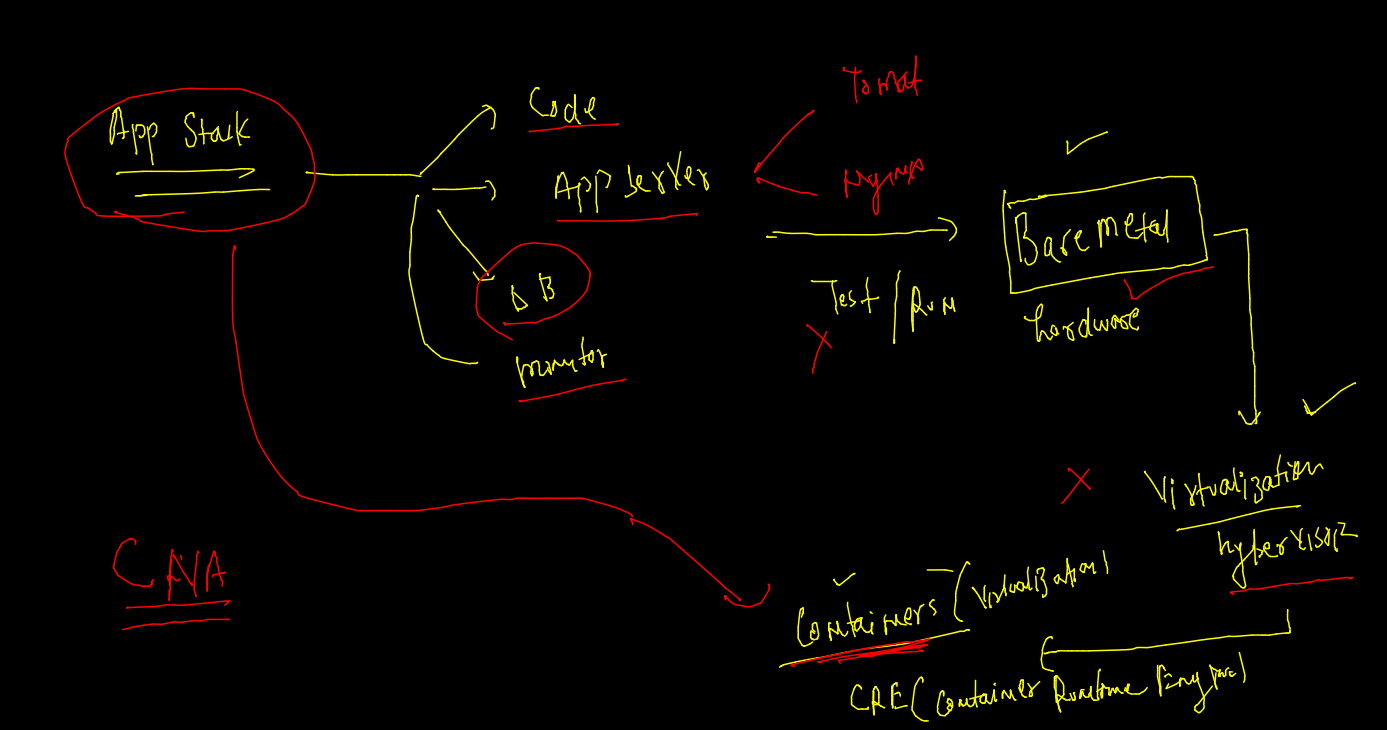 App Stack
Code
App Server
DB
monitor
Tomcat
Nginx
Test / Run
Bare Metal
hardware
Virtualization
hypervisor
Containers (Virtualization)
CRE (Container Runtime Engine)
CNA